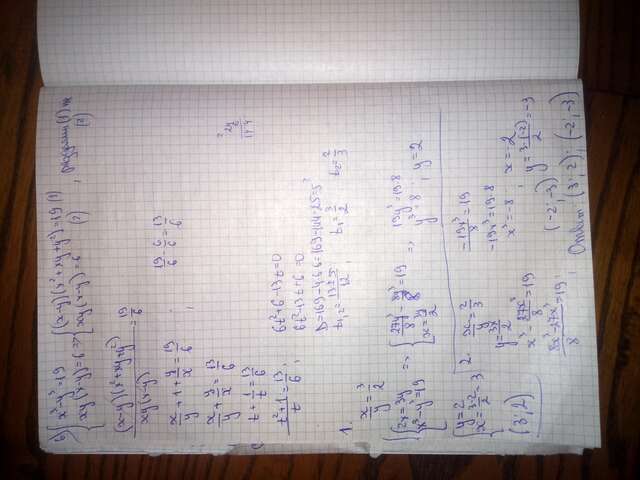 б) { x³-y³=19 xy(x-y)=6 => { (x-y)(x²+xy+y²)=19 (1) xy(x-y)=6 (2) , разделим (1) на (2)
(x-y)(x²+xy+y²) / xy(x-y) = 19/6
x/y + 1 + y/x = 19/6 ; 19/6 - 6/6 = 13/6
x/y + y/x = 13/6
t + 1/t = 13/6
(t²+1)/t = 13/6 ; 6t²+6-13t=0
6t²-13t+6=0
D=169-4·6·6=169-144=25=5²
t₁,₂ = (13±5)/12 , t₁=3/2 t₂=2/3
1.
x/y = 3/2
{ 2x=3y x³-y³=19 => { 27y³/8 - 8y³/8 = 19 x=3y/2 => 19y³=19·8
y³=8 ; y=2
{ y=2 x=3·2/2=3
(3;2)
2. x/y = 2/3
y=3x/2
x³ - 27x³/8 = 19
(8x³-27x³)/8 = 19 ;
-19x³/8 = 19
-19x³=19·8
x³=-8 ; x=-2
y=3·(-2)/2=-3
(-2;-3)
Ответ: (3;2); (-2;-3)